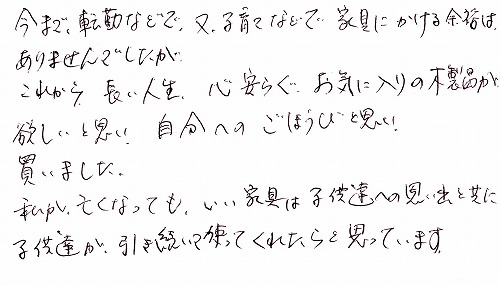 今まで、転勤などで、又、子育てなどで 家具にかける余裕は、
ありませんでしたが
これから、長い人生、心安らぐ、お気に入りの木製品が
欲しいと思い、自分へのごほうびと思い、
買いました。
私が、亡くなっても、いい家具は子供達への思い出と共に
子供達が、引き続いて使ってくれたらと思っています。